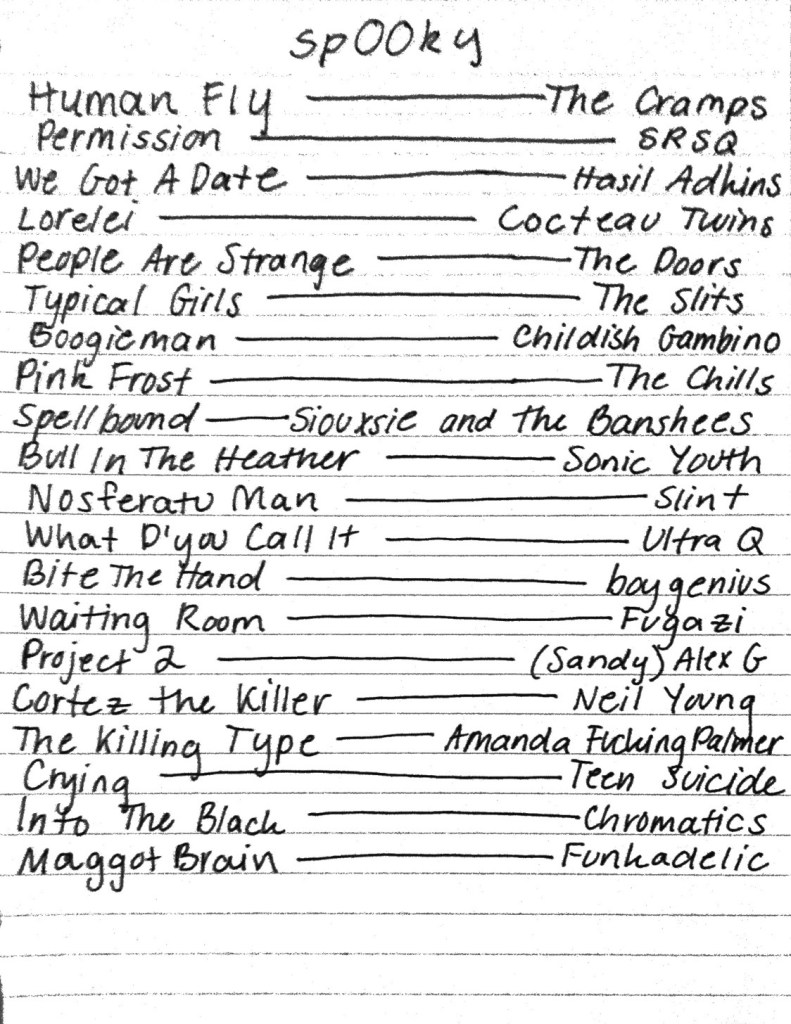 spOOky
Human Fly — The Cramps
Permission — SRSQ
We Got A Date — Hasil Adkins
Lorelei — Cocteau Twins
People Are Strange — The Doors
Typical Girls — The Slits
Boogieman — Childish Gambino
Pink Frost — The Chills
Spellbound — Siouxsie and the Banshees
Bull In The Heather — Sonic Youth
Nosferatu Man — Slint
What D'you Call It — Ultra Q
Bite The Hand — boygenius
Waiting Room — Fugazi
Project 2 — (Sandy) Alex G
Cortez the Killer — Neil Young
The Killing Type — Amanda Fucking Palmer
Crying — Teen Suicide
Into The Black — Chromatics
Maggot Brain — Funkadelic